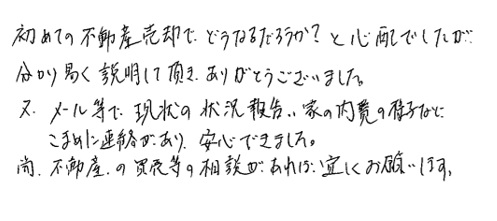 初めての不動産売却で、どうなるだろうか?と心配でしたが
分かり易く説明して頂き、ありがとうございました。
又、メール等で現状の状況報告、家の内覧の様子など
こまめに連絡があり、安心できました。
尚、不動産の買売等の相談があれば、宜しくお願いします。